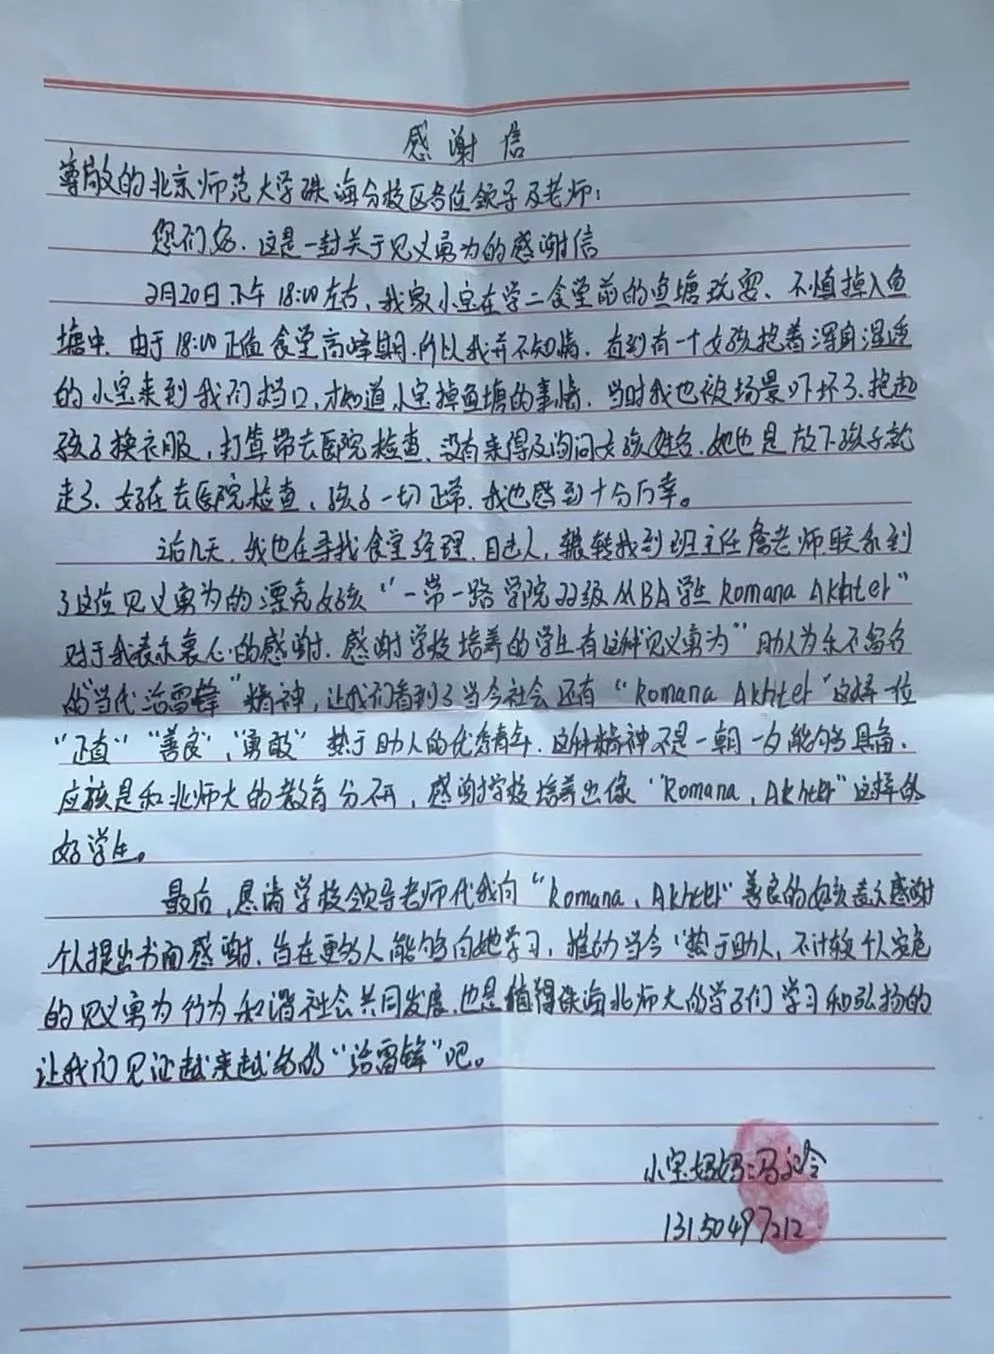 感谢信
尊敬的北京师范大学珠海分校区各位领导及老师：
您们好，这是一封关于见义勇为的感谢信
2月20日下午18:00左右，我家小宝在学二食堂前的鱼塘玩耍、不慎掉入鱼
塘中，由于18:00正值食堂高峰期，所以我并不知情，看到有一个女孩抱着浑身湿透
的小宝来到我们档口，才知道小宝掉鱼塘的事情，当时我也被场景吓坏了、抱起
孩子换衣服，打算带去医院检查、没有来得及询问女孩姓名，她也是放下孩子就
走了、好在去医院检查，孩子一切正常，我也感到十分万幸。
之后几天，我也在寻找食堂经理、目击人，辗转找到班主任詹老师联系到
了这位见义勇为的漂亮女孩“一带一路学院22级MBA学生Romana Akhter”
对于我表示衷心的感谢，感谢学校培养的学生有这种见义勇为”助人为乐不留名
的“当代活雷锋”精神，让我们看到了当今社会还有“Romana Akhter”这样一位
“正直”“善良”、“勇敢”热于助人的优秀青年，这种精神不是一朝一夕能够具备，
应该是和北师大的教育分不开，感谢学校培养出像“Romana，Akhter”这样的
好学生。
最后，恳请学校领导老师代我向“Romana、Akhter”善良的女孩表示感谢
个人提出书面感谢，旨在更多人能够向她学习，推动当今“热于助人，不计较个人安危
的见义勇为行为和谐社会共同发展，也是值得珠海北师大的学子们学习和弘扬的
让我们见证越来越多的“活雷锋”吧。
小宝妈妈：冯
13150497212